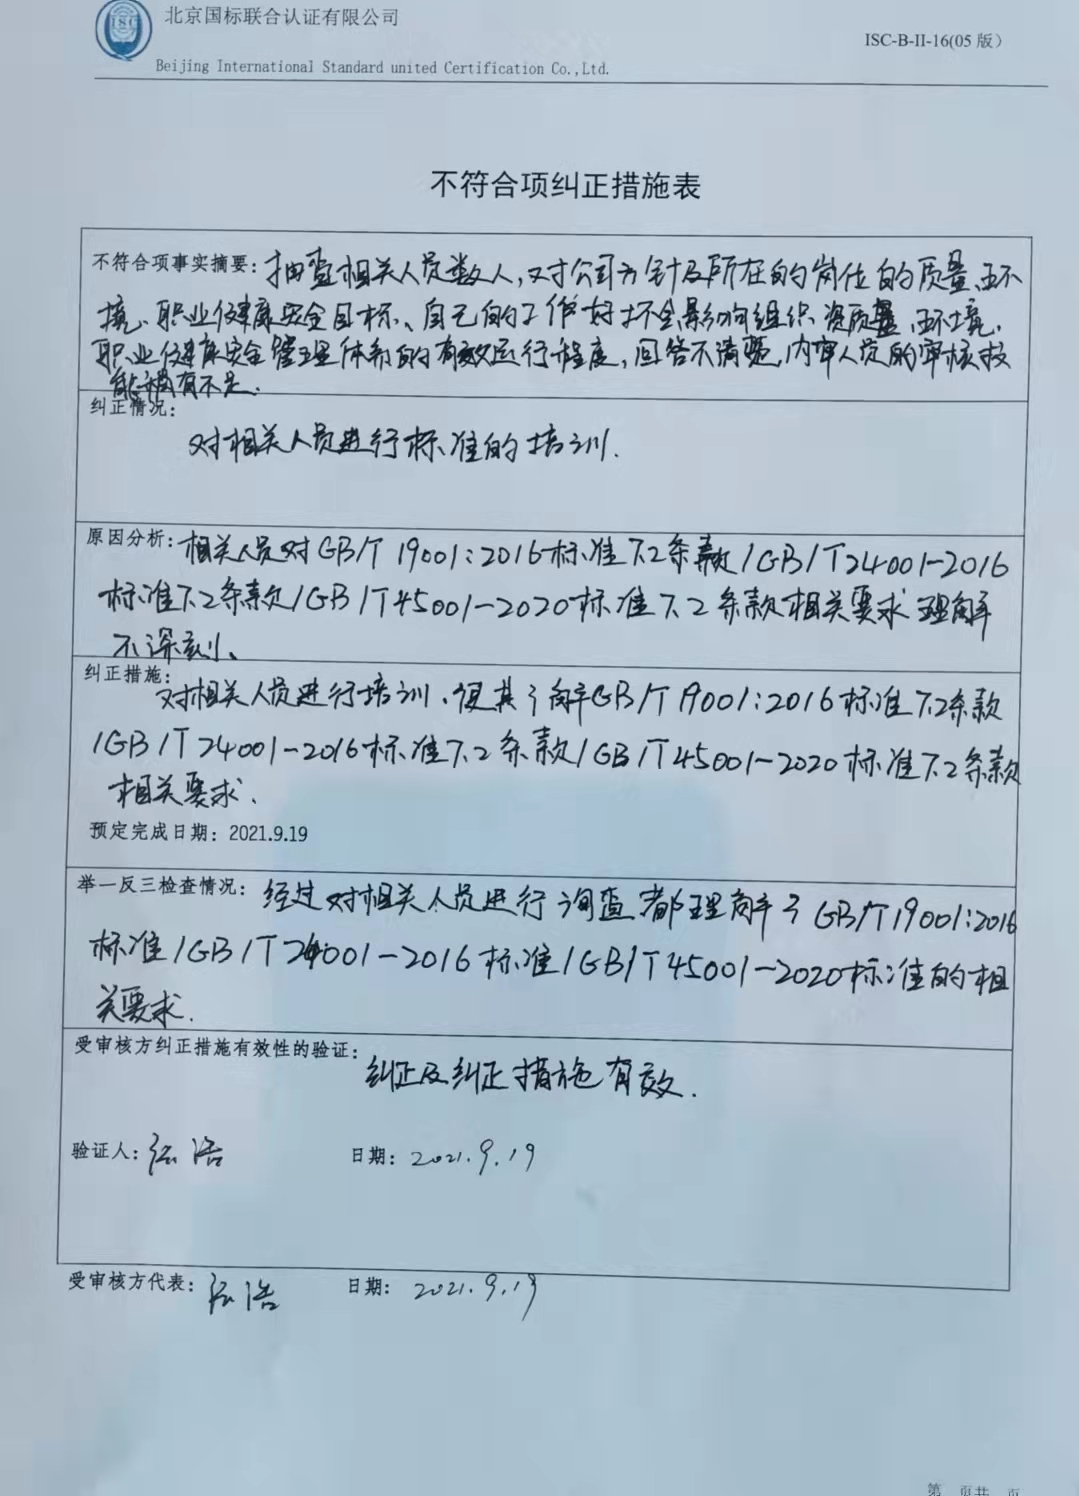 ISC
北京国标联合认证有限公司
ISC-B-II-16(05 版)
Beijing International Standard united Certification Co.,Ltd.
不符合项纠正措施表
不符合项事实摘要：抽查相关人员数人，对公司方针及所在的岗位的质量、环
境、职业健康安全目标、自己的工作好坏会影响组织 质量、环境、
职业健康安全管理体系的有效运行程度，回答不清楚，内审人员的审核技
能稍有不足.
纠正情况：
对相关人员进行标准的培训.
原因分析：相关人员对GB/T 19001:2016标准7.2条款/GB/T24001-2016
标准7.2条款/GB/T45001-2020标准7.2条款相关要求理解
不深刻、
纠正措施：
对相关人员进行培训、使其了解GB/T 19001:2016标准7.2条款
/GB/T24001-2016标准7.2条款/GB/T45001-2020标准7.2条款
相关要求.
预定完成日期：2021.9.19
举一反三检查情况：经过对相关人员进行询查都理解了GB/T19001:2016
标准/GB/T24001-2016标准/GB/T45001-2020标准的相
关要求.
受审核方纠正措施有效性的验证：
纠正及纠正措施有效.
验证人： 浩 日期：2021.9.19
受审核方代表： 浩 日期：2021.9.19
第 页共 页